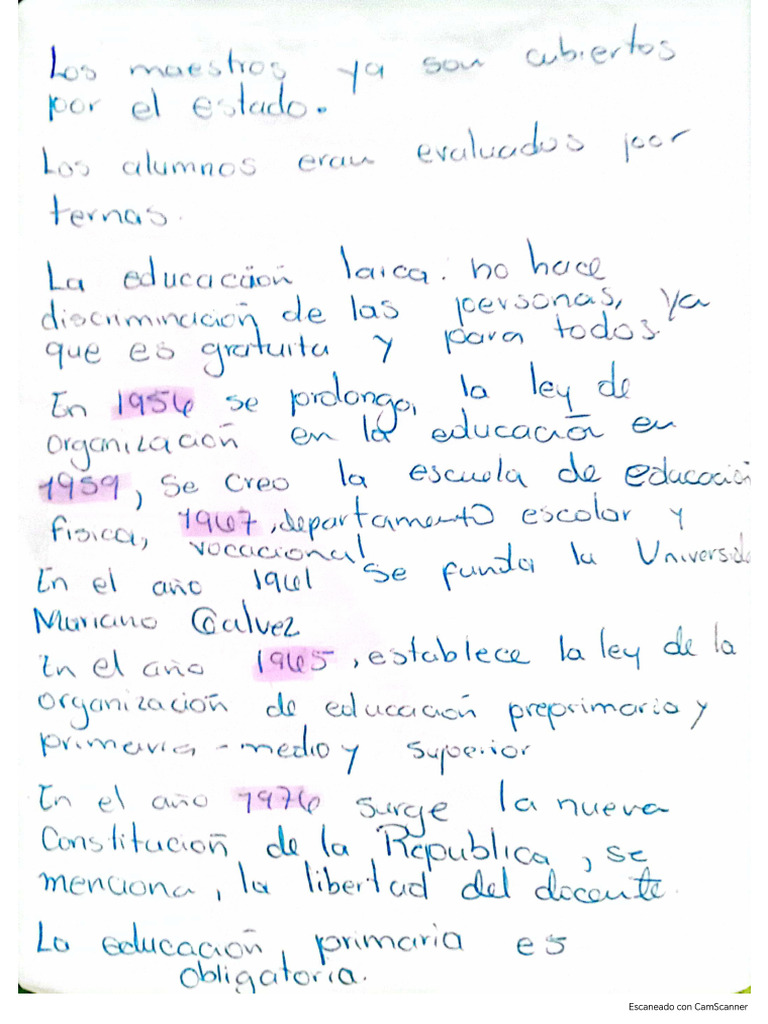 Los maestros ya son cubiertos
por el estado.
Los alumnos eran evaluados por
ternas.
La educación laica: no hace
discriminación de las personas, ya
que es gratuita y para todos.
En 1956 se prolongo, la ley de
organización en la educación en
1959, se creo la escuela de educación
fisica, 1967, departamento escolar y
vocacional
En el año 1961 se funda la Universida
Mariano Galvez
En el año 1965, establece la ley de la
organización de educación preprimario y
primaria - medio y superior
En el año 1976 surge la nueva
Constitución de la Republica, se
menciona, la libertad del docente.
La educación, primaria es
obligatoria.
Escaneado con CamScanner